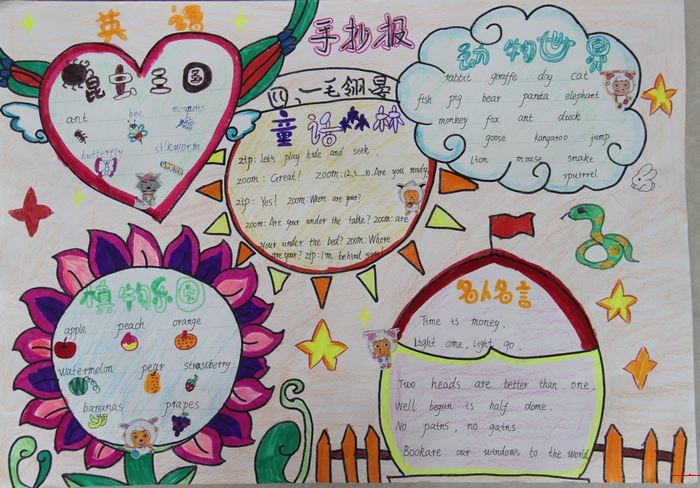 英语
手抄报
昆虫王国
ant
bee
mosquito
butterfly
silkworm
童话森林
zip: Let's play hide and seek.
zoom: Great! zoom: 1,2,3...10. Are you ready
zip: Yes! zoom: Where are your?
zoom: Are your under the table? zoom: are
your under the bed? zoom: Where
are your? zip: I'm behind
动物世界
rabbit giraffe dog cat
fish pig bear panta elephant
monkey fox ant duck
goose kangaroo jump
Lion mouse snake
植物乐园
apple peach orange
watermelon pear strawberry
bananas grapes
名人名言
Time is money.
Light come, Light go.
Two heads are better than one.
Well begun is half dome.
No pains, no gains.
Bookare our windows to the world